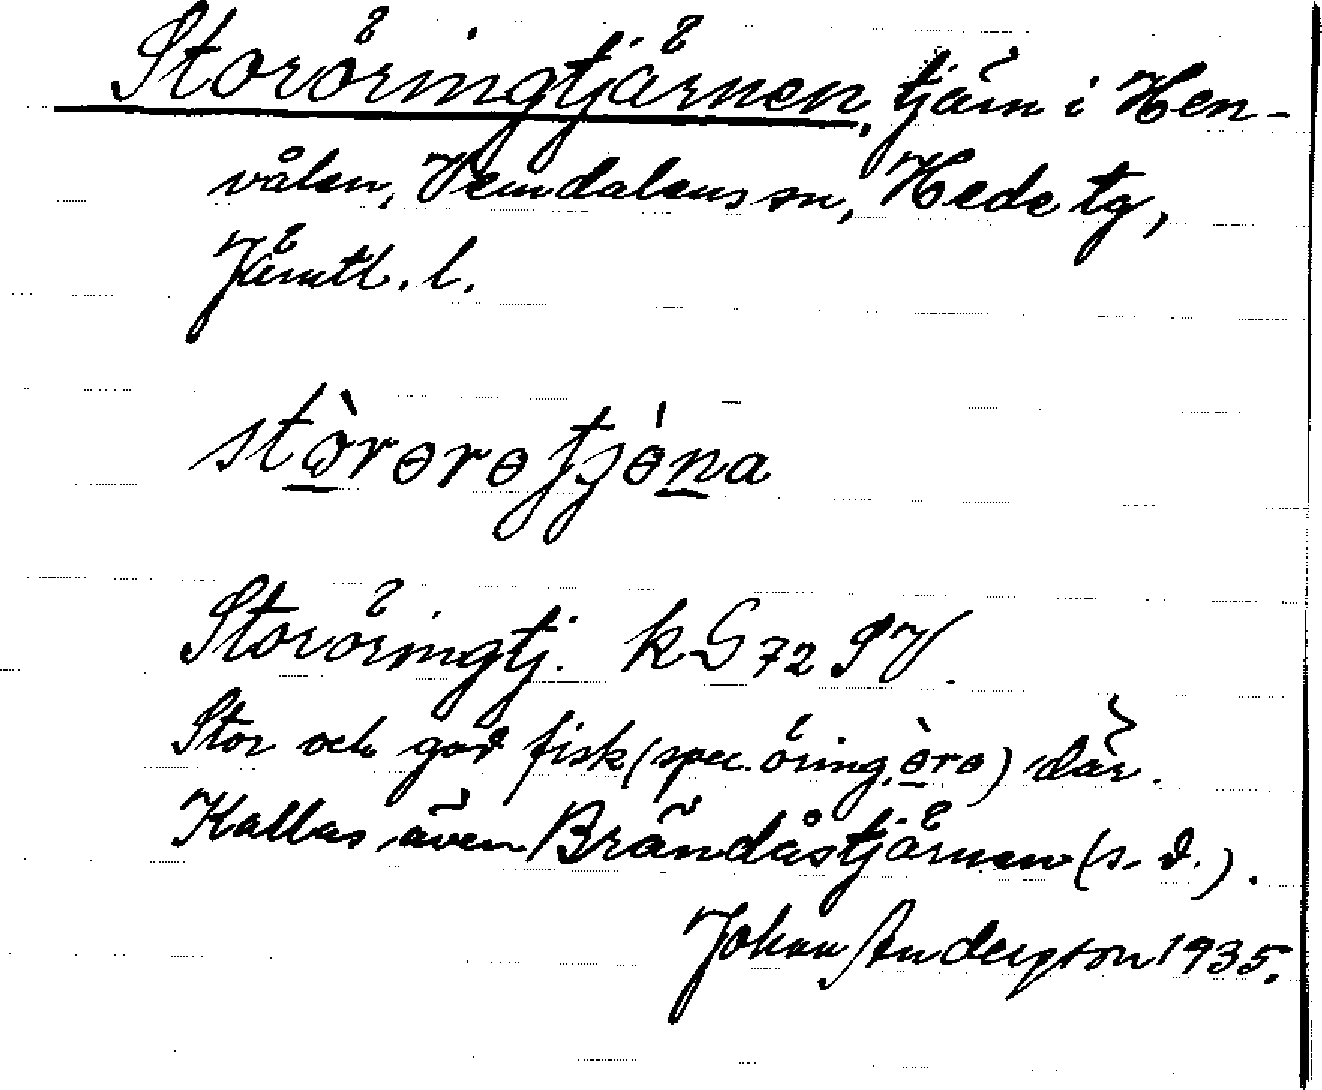 Storöringtjärnen, tjärn i Hen-
vålen, Vemdalens sn, Hede tg,
Jämtl. l.
stòrɵrɵtjɵ́na
Storöringtj. k G 72 SV.
Stor och god fisk (spec. öring, ɵ̀rɵ) där.
Kallas även Brändåstjärnen (s. d.).
Johan Anderson 1935.